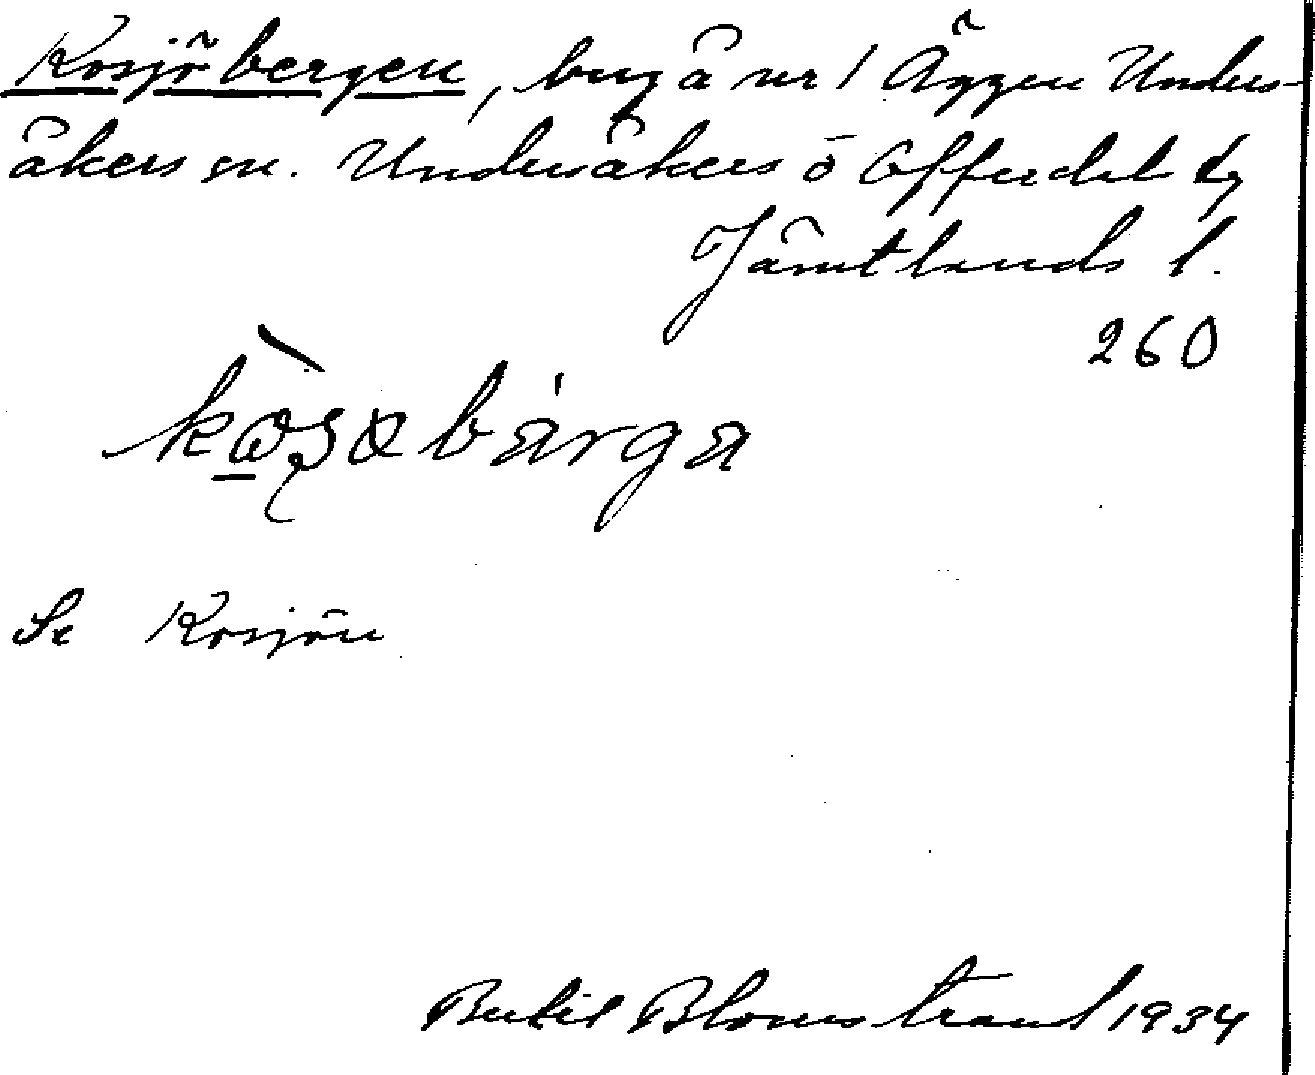 Kosjöbergen, berg å nr 1 Äggen Unders-
åkers sn. Undersåkers o Offerdal tg
Jämtlands l.
260
Se Kosjön
Bertil Blomstrand 1934